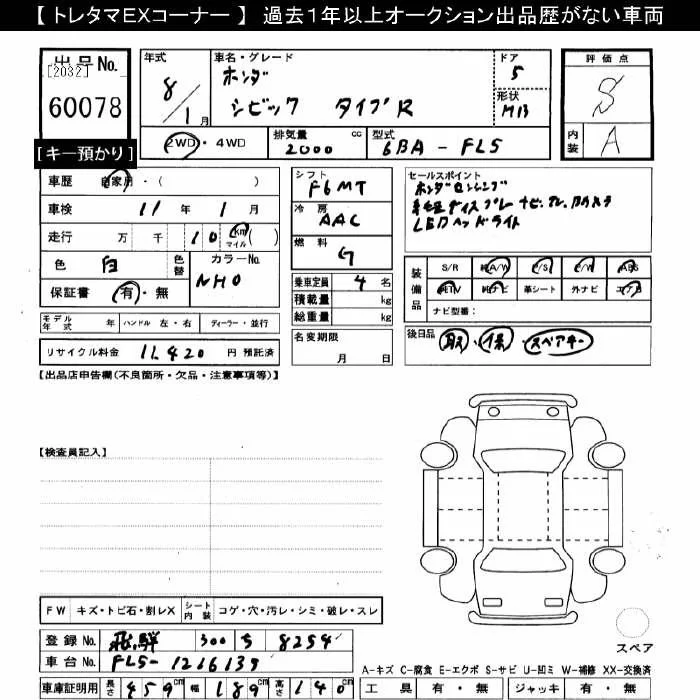 【トレタマEXコーナー】 過去1年以上オークション出品歴がない車両
出品No.
[2032]
60078
【キー預かり】
年式
8/1月
車名・グレード
ホンダ
シビック タイプR
ドア
5
形状
評価点
S
内装
A
2WD・4WD
排気量 2000 cc
型式 6BA - FL5
車歴 自家用・( )
車検 11年 1月
走行 万 千 10 Km マイル ( )
色 白 色替 カラーNo. NH0
保証書 有・無
モデル年式 年 ハンドル 左・右 ディーラー・並行
リサイクル料金 11420 円 預託済
シフト F6MT
冷房 AAC
燃料 G
乗車定員 4名
積載量 kg
総重量 kg
名変期限
月 日
セールスポイント
ホンダセンシング
LEDヘッドライト
装備品 S/R 純A/W P/S P/W ABS
純TV 純ナビ 革シート 外ナビ エアB
ナビ型番:
後日品 取・保・スペアキー
【出品店申告欄(不良箇所・欠品・注意事項等)】
【検査員記入】
FW キズ・トビ石・割レX シート内装 コゲ・穴・汚レ・シミ・破レ・スレ
登録No. 飛騨 300 ら 8254
車台No. FL5-1216135
車庫証明用 長さ 459cm 幅 189cm 高さ 140cm
スペア
A-キズ C-腐食 E-エクボ S-サビ U-凹ミ W-補修 XX-交換済
工具 有・無 ジャッキ 有・無